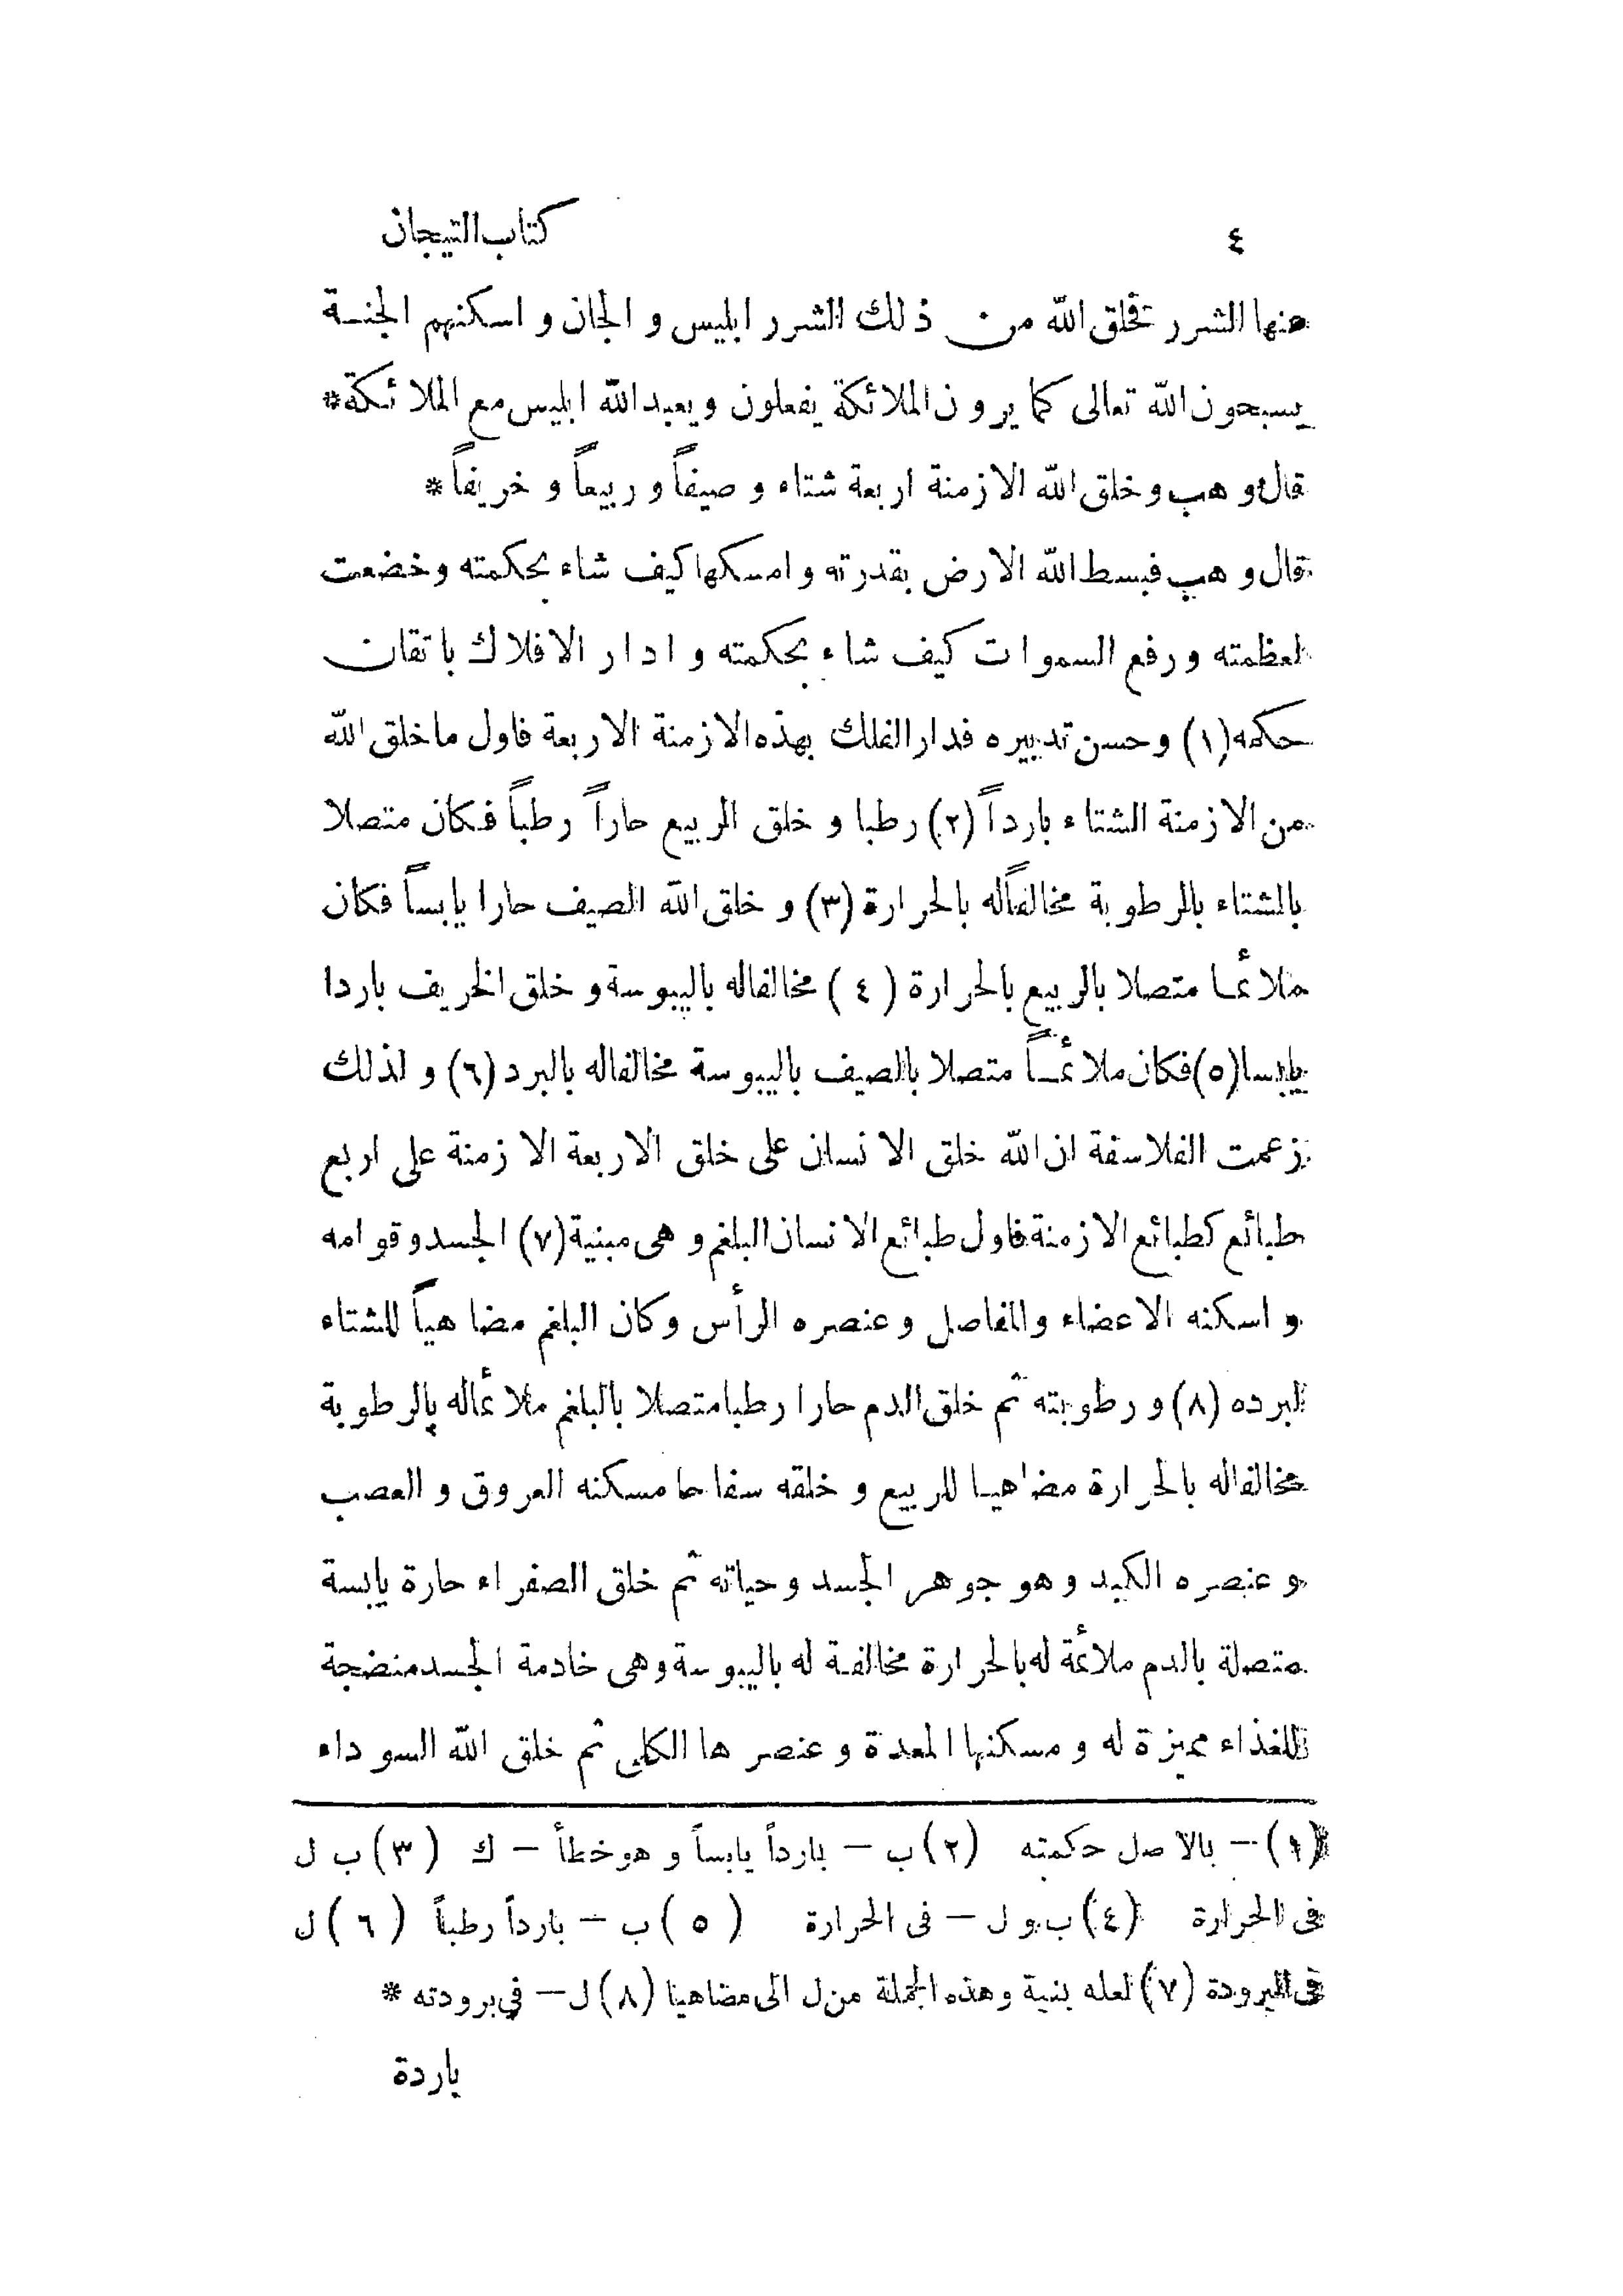 ٤ كتاب التيجان
منها الشرر فخلق الله من ذلك الشرر ابليس و الجان و اسكنهم الجنة
يسبحون الله تعالى كما يرون الملائكة يفعلون و يعبد الله ابليس مع الملائكة*
قال وهب وخلق الله الازمنة اربعة شتاء و صيفاً و ربيعاً و خريفاً*
قال وهب فبسط الله الارض بقدرته و امسكها كيف شاء بحكمته وخضعت
لعظمته و رفع السموات كيف شاء بحكمته و ادار الافلاك باتقان
حكمه (١) و حسن تدبيره فدار الفلك بهذه الازمنة الاربعة فاول ما خلق الله
من الازمنة الشتاء بارداً (٢) رطبا و خلق الربيع حاراً رطباً فكان متصلا
بالشتاء بالرطوبة مخالفاً له بالحرارة (٣) و خلق الله الصيف حارا يابساً فكان
ملائما متصلا بالربيع بالحرارة (٤) مخالفا له باليبوسة و خلق الخريف باردا
يابسا (٥) فكان ملائماً متصلا بالصيف باليبوسة مخالفا له بالبرد (٦) و لذلك
زعمت الفلاسفة ان الله خلق الانسان على خلق الاربعة الازمنة على اربع
طبائع كطبائع الازمنة فاول طبائع الانسان البلغم و هى مبنية (٧) الجسد و قوامه
و اسكنه الاعضاء والمفاصل و عنصره الرأس و كان البلغم مضاهياً للشتاء
لبرده (٨) و رطوبته ثم خلق الدم حارا رطبا متصلا بالبلغم ملائما له بالرطوبة
مخالفا له بالحرارة مضاهيا للربيع و خلقه سفاحا مسكنه العروق و العصب
و عنصره الكبد و هو جوهر الجسد و حياته ثم خلق الصفراء حارة يابسة
متصلة بالدم ملائمة له بالحرارة مخالفة له باليبوسة وهى خادمة الجسد منضجة
للغذاء مميزة له و مسكنها المعدة و عنصرها الكلى ثم خلق الله السوداء
(١) — بالاصل حكمته (٢) ب — بارداً يابساً و هو خطأ — ك (٣) ب ل
فى الحرارة (٤) ب و ل — فى الحرارة (٥) ب — بارداً رطباً (٦) ل
فى البرودة (٧) لعله بنية و هذه الجملة من ل الى مضاهيا (٨) ل — فى برودته *
باردة